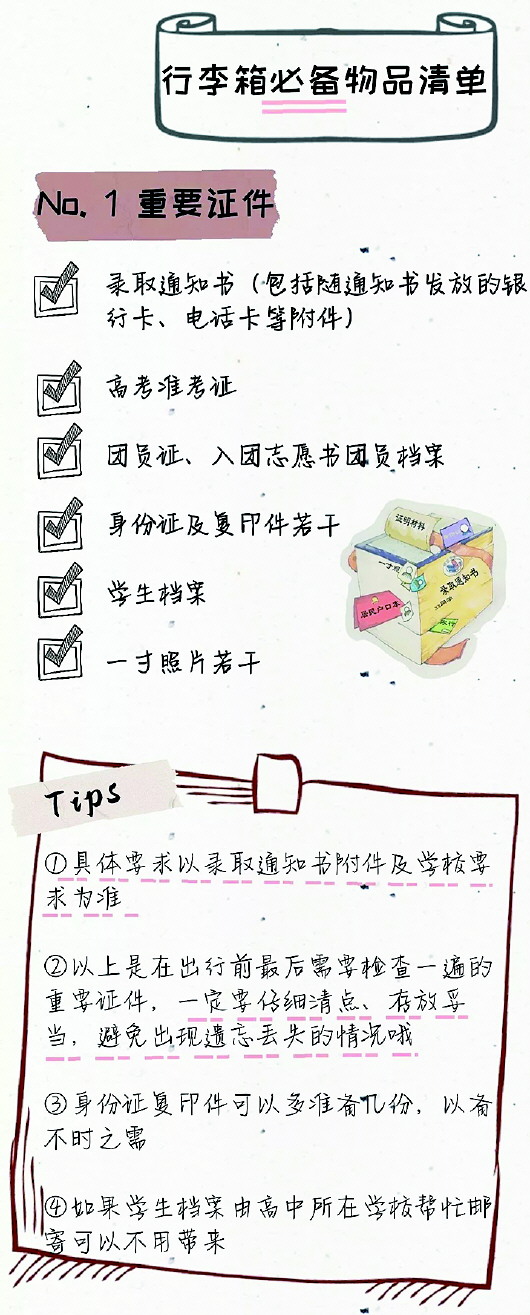 行李箱必备物品清单
No. 1 重要证件
录取通知书（包括随通知书发放的银
行卡、电话卡等附件）
高考准考证
团员证、入团志愿书团员档案
身份证及复印件若干
证明材料
一寸照
录取通知书
居民户口本
学生档案
一寸照片若干
Tips
①具体要求以录取通知书附件及学校要
求为准
②以上是在出行前最后需要检查一遍的
重要证件，一定要仔细清点、存放妥
当，避免出现遗忘丢失的情况哦
③身份证复印件可以多准备几份，以备
不时之需
④如果学生档案由高中所在学校帮忙邮
寄可以不用带来